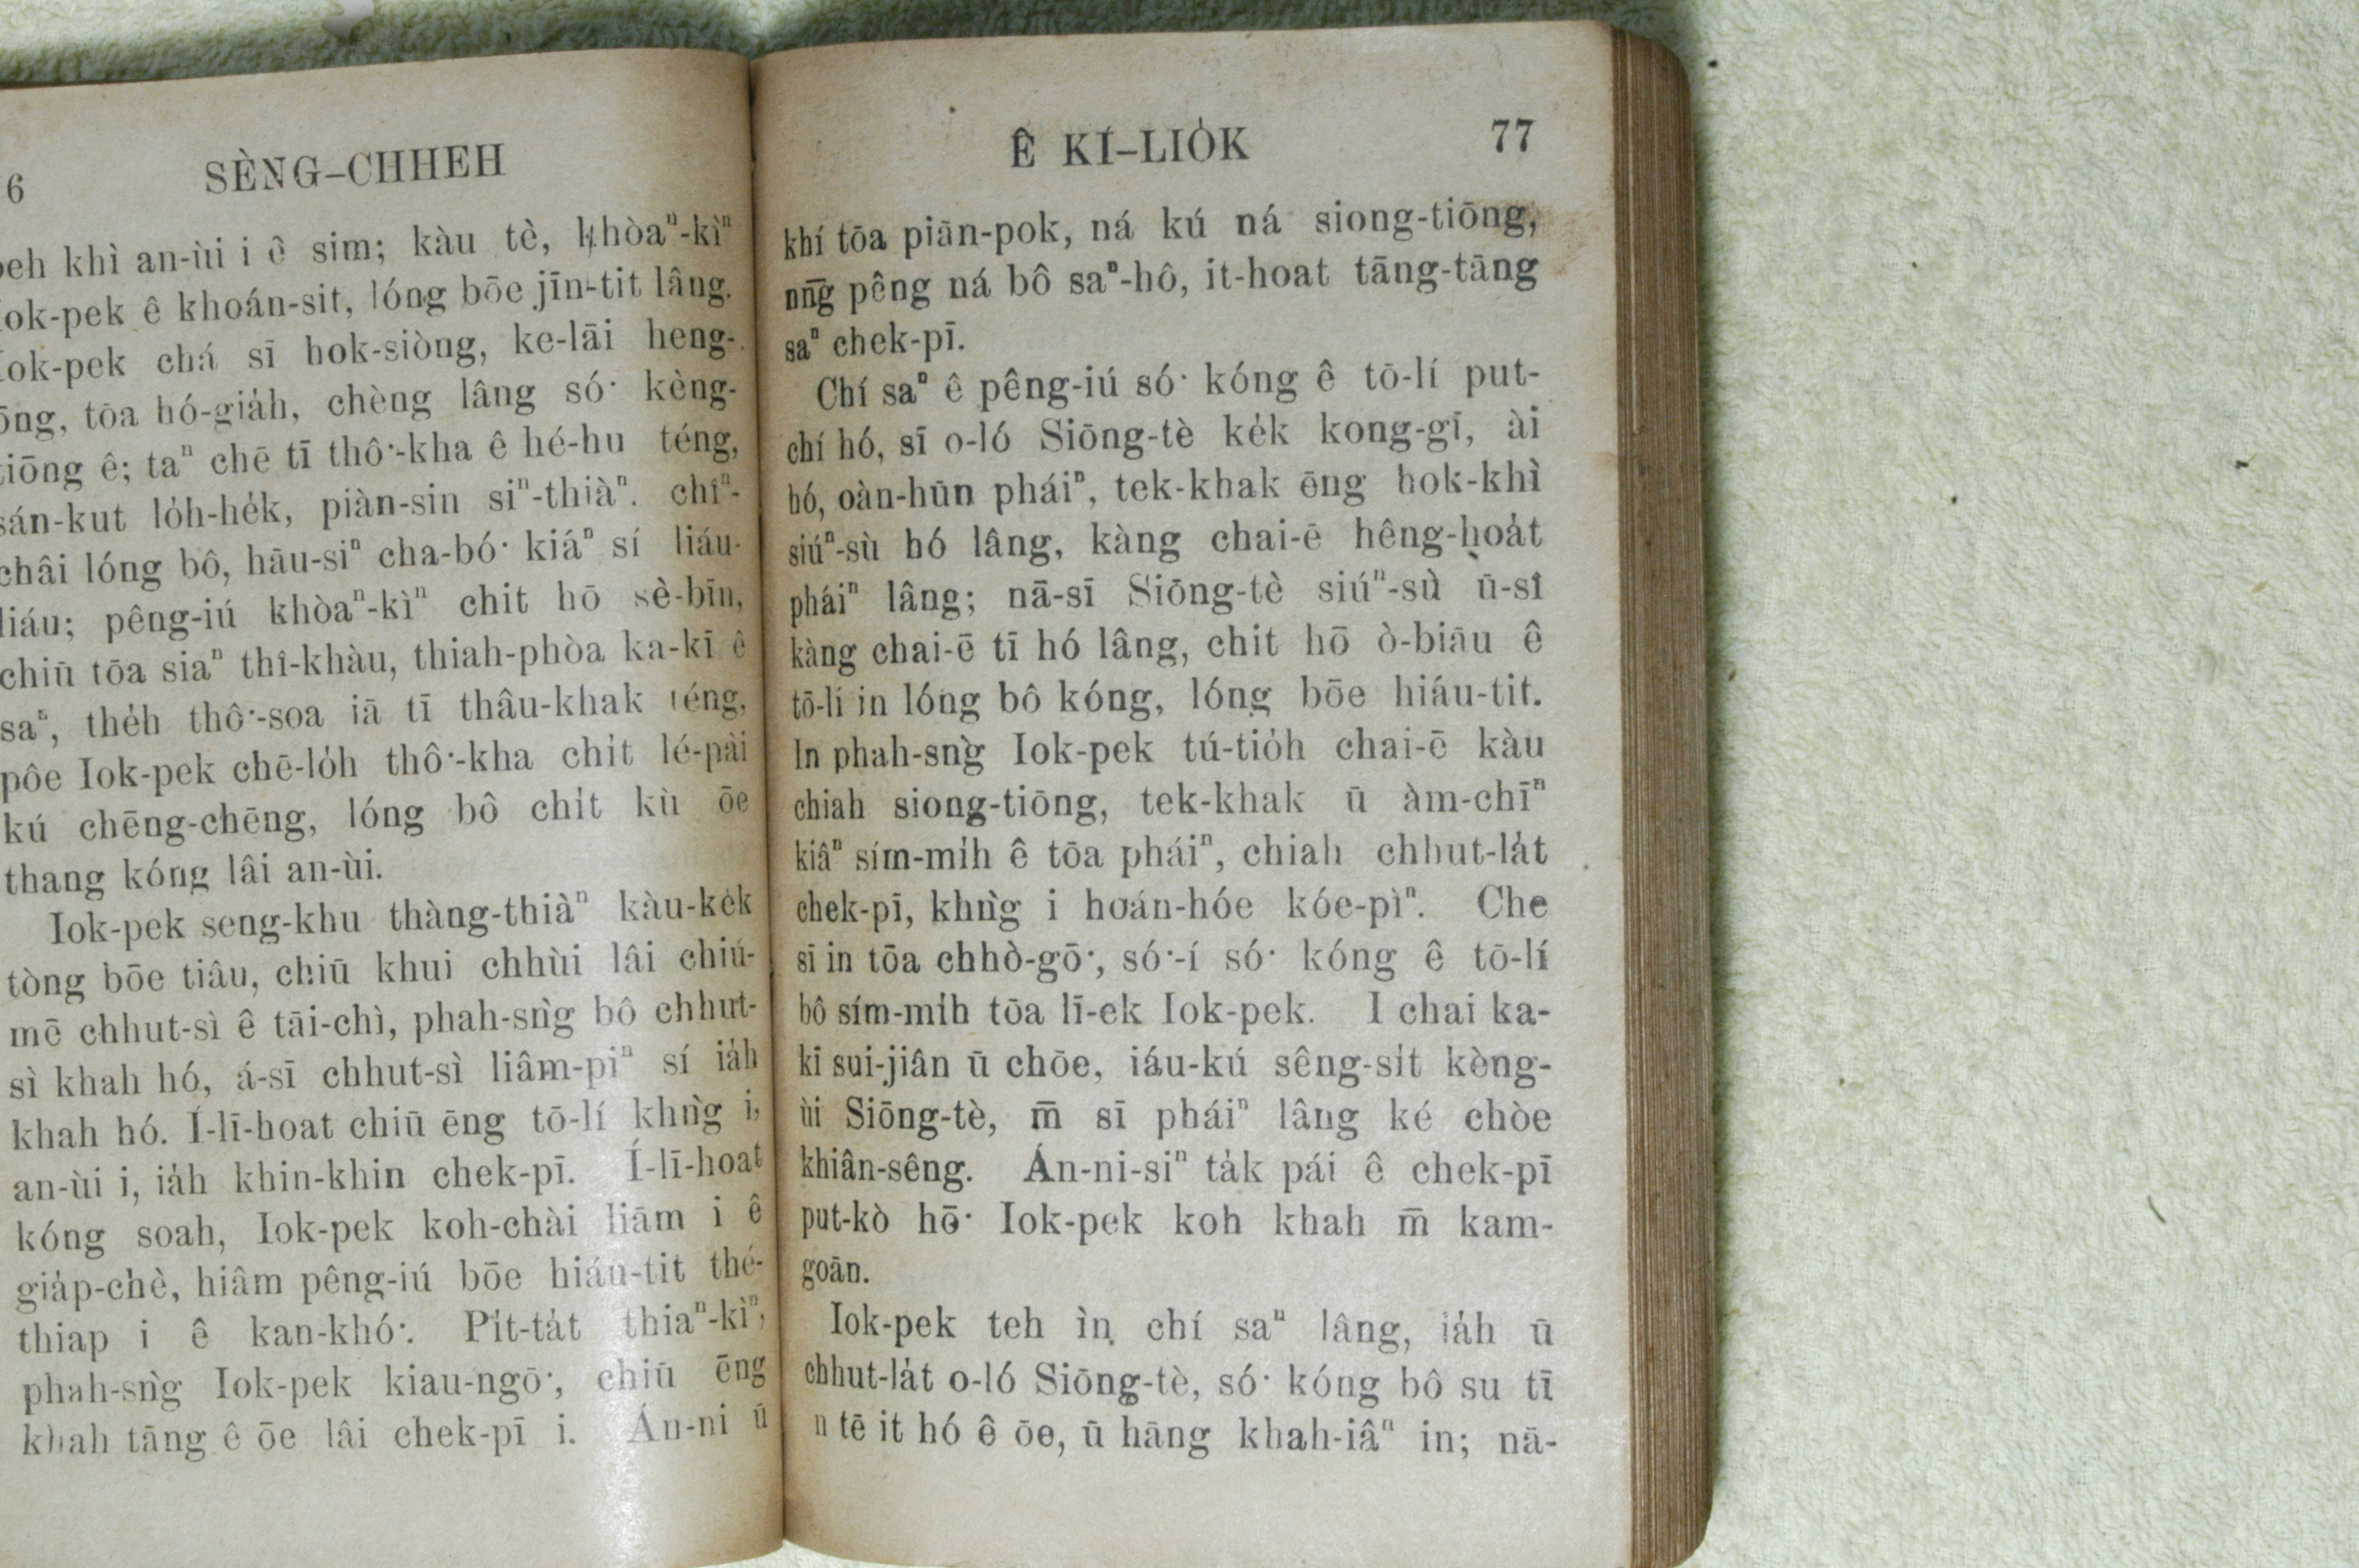 6 SÈNG–CHHEH
khì an-ùi i ê sim; kàu tè, khòaⁿ-kìⁿ
ê khoán-sit, lóng bōe jīn-tit lâng.
chá sī hok-siòng, ke-lāi heng-
tōa hó-gia̍h, chèng lâng só͘ kèng-
ê; taⁿ chē tī thô͘-kha ê hé-hu téng,
lo̍h-he̍k, piàn-sin siⁿ-thiàⁿ. chîⁿ-
lóng bô, hāu-siⁿ cha-bó͘ kiáⁿ sí liáu-
liáu; pêng-iú khòaⁿ-kìⁿ chit hō sè-bīn,
chiū tōa siaⁿ thî-khàu, thiah-phòa ka-kī ê
saⁿ, the̍h thô͘-soa iā tī thâu-khak téng,
pôe Iok-pek chē-lo̍h thô͘-kha chi̍t lé-pài
kú chēng-chēng, lóng bô chi̍t kù ōe
thang kóng lâi an-ùi.
Iok-pek seng-khu thàng-thiàⁿ kàu-ke̍k
tòng bōe tiâu, chiū khui chhùi lâi chiú-
mē chhut-sì ê tāi-chì, phah-sǹg bô chhut-
sì khah hó, á-sī chhut-sì liâm-piⁿ sí ia̍h
khah hó. Í-lī-hoat chiū ēng tō-lí khǹg i,
an-ùi i, ia̍h khin-khin chek-pī. Í-lī-hoat
kóng soah, Iok-pek koh-chài liām i ê
gia̍p-chè, hiâm pêng-iú bōe hiáu-tit thé-
thiap i ê kan-khó͘. Pi̍t-ta̍t thiaⁿ-kìⁿ,
phah-sǹg Iok-pek kiau-ngō͘, chiū ēng
khah tāng ê ōe lâi chek-pī i. Án-ni ū
Ê KÍ–LIO̍K 77
khí tōa piān-pok, ná kú ná siong-tiōng,
nn̄g pêng ná bô saⁿ-hô, it-hoat tāng-tāng
saⁿ chek-pī.
Chí saⁿ ê pêng-iú só͘ kóng ê tō-lí put-
chí hó, sī o-ló Siōng-tè ke̍k kong-gī, ài
hó, oàn-hūn pháiⁿ, tek-khak ēng hok-khì
siúⁿ-sù hó lâng, kàng chai-ē hêng-hoa̍t
pháiⁿ lâng; nā-sī Siōng-tè siúⁿ-sù ū-sî
kàng chai-ē tī hó lâng, chit hō ò-biāu ê
tō-lí in lóng bô kóng, lóng bōe hiáu-tit.
In phah-sǹg Iok-pek tú-tio̍h chai-ē kàu
chiah siong-tiōng, tek-khak ū àm-chīⁿ
kiâⁿ sím-mi̍h ê tōa pháiⁿ, chiah chhut-la̍t
chek-pī, khǹg i hoán-hóe kóe-pìⁿ. Che
sī in tōa chhò-gō͘, só͘-í só͘ kóng ê tō-lí
bô sím-mi̍h tōa lī-ek Iok-pek. I chai ka-
kī sui-jiân ū chōe, iáu-kú sêng-si̍t kèng-
ùi Siōng-tè, m̄ sī pháiⁿ lâng ké chòe
khiân-sêng. Án-ni-siⁿ ta̍k pái ê chek-pī
put-kò hō͘ Iok-pek koh khah m̄ kam-
goān.
Iok-pek teh ìn chí saⁿ lâng, ia̍h ū
chhut-la̍t o-ló Siōng-tè, só͘ kóng bô su tī
n tē it hó ê ōe, ū hāng khah-iâⁿ in; nā-